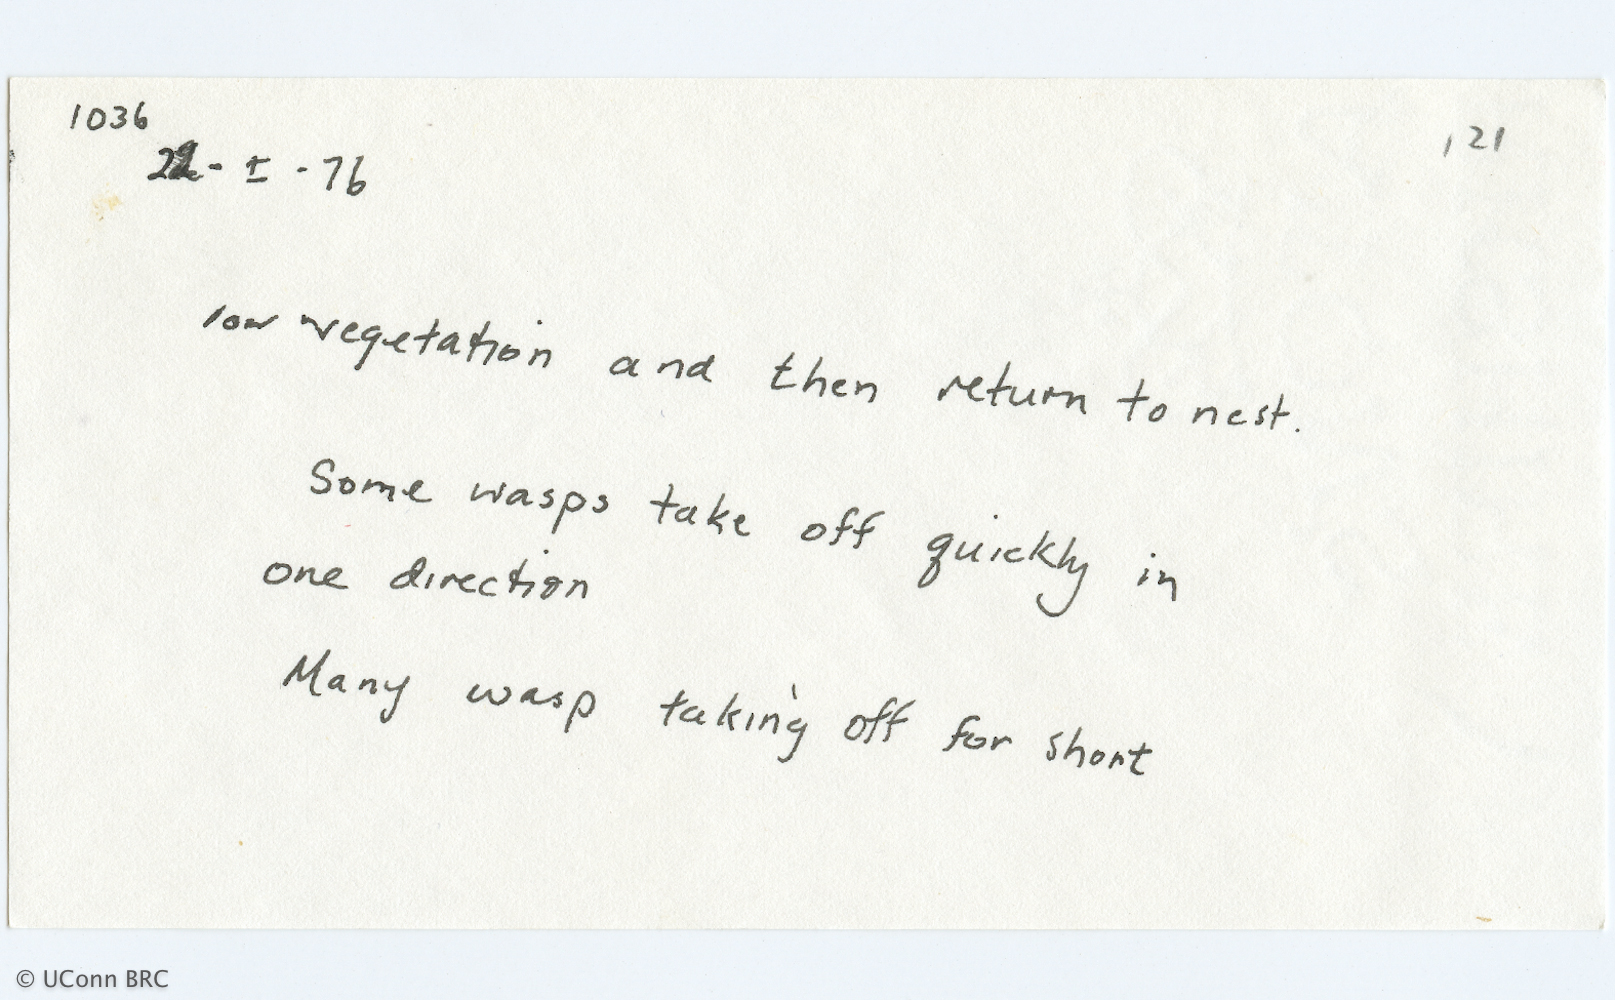 1036
121
22-I-76
low vegetation and then return to nest.
Some wasps take off quickly in
one direction
Many wasp taking off for short
© UConn BRC